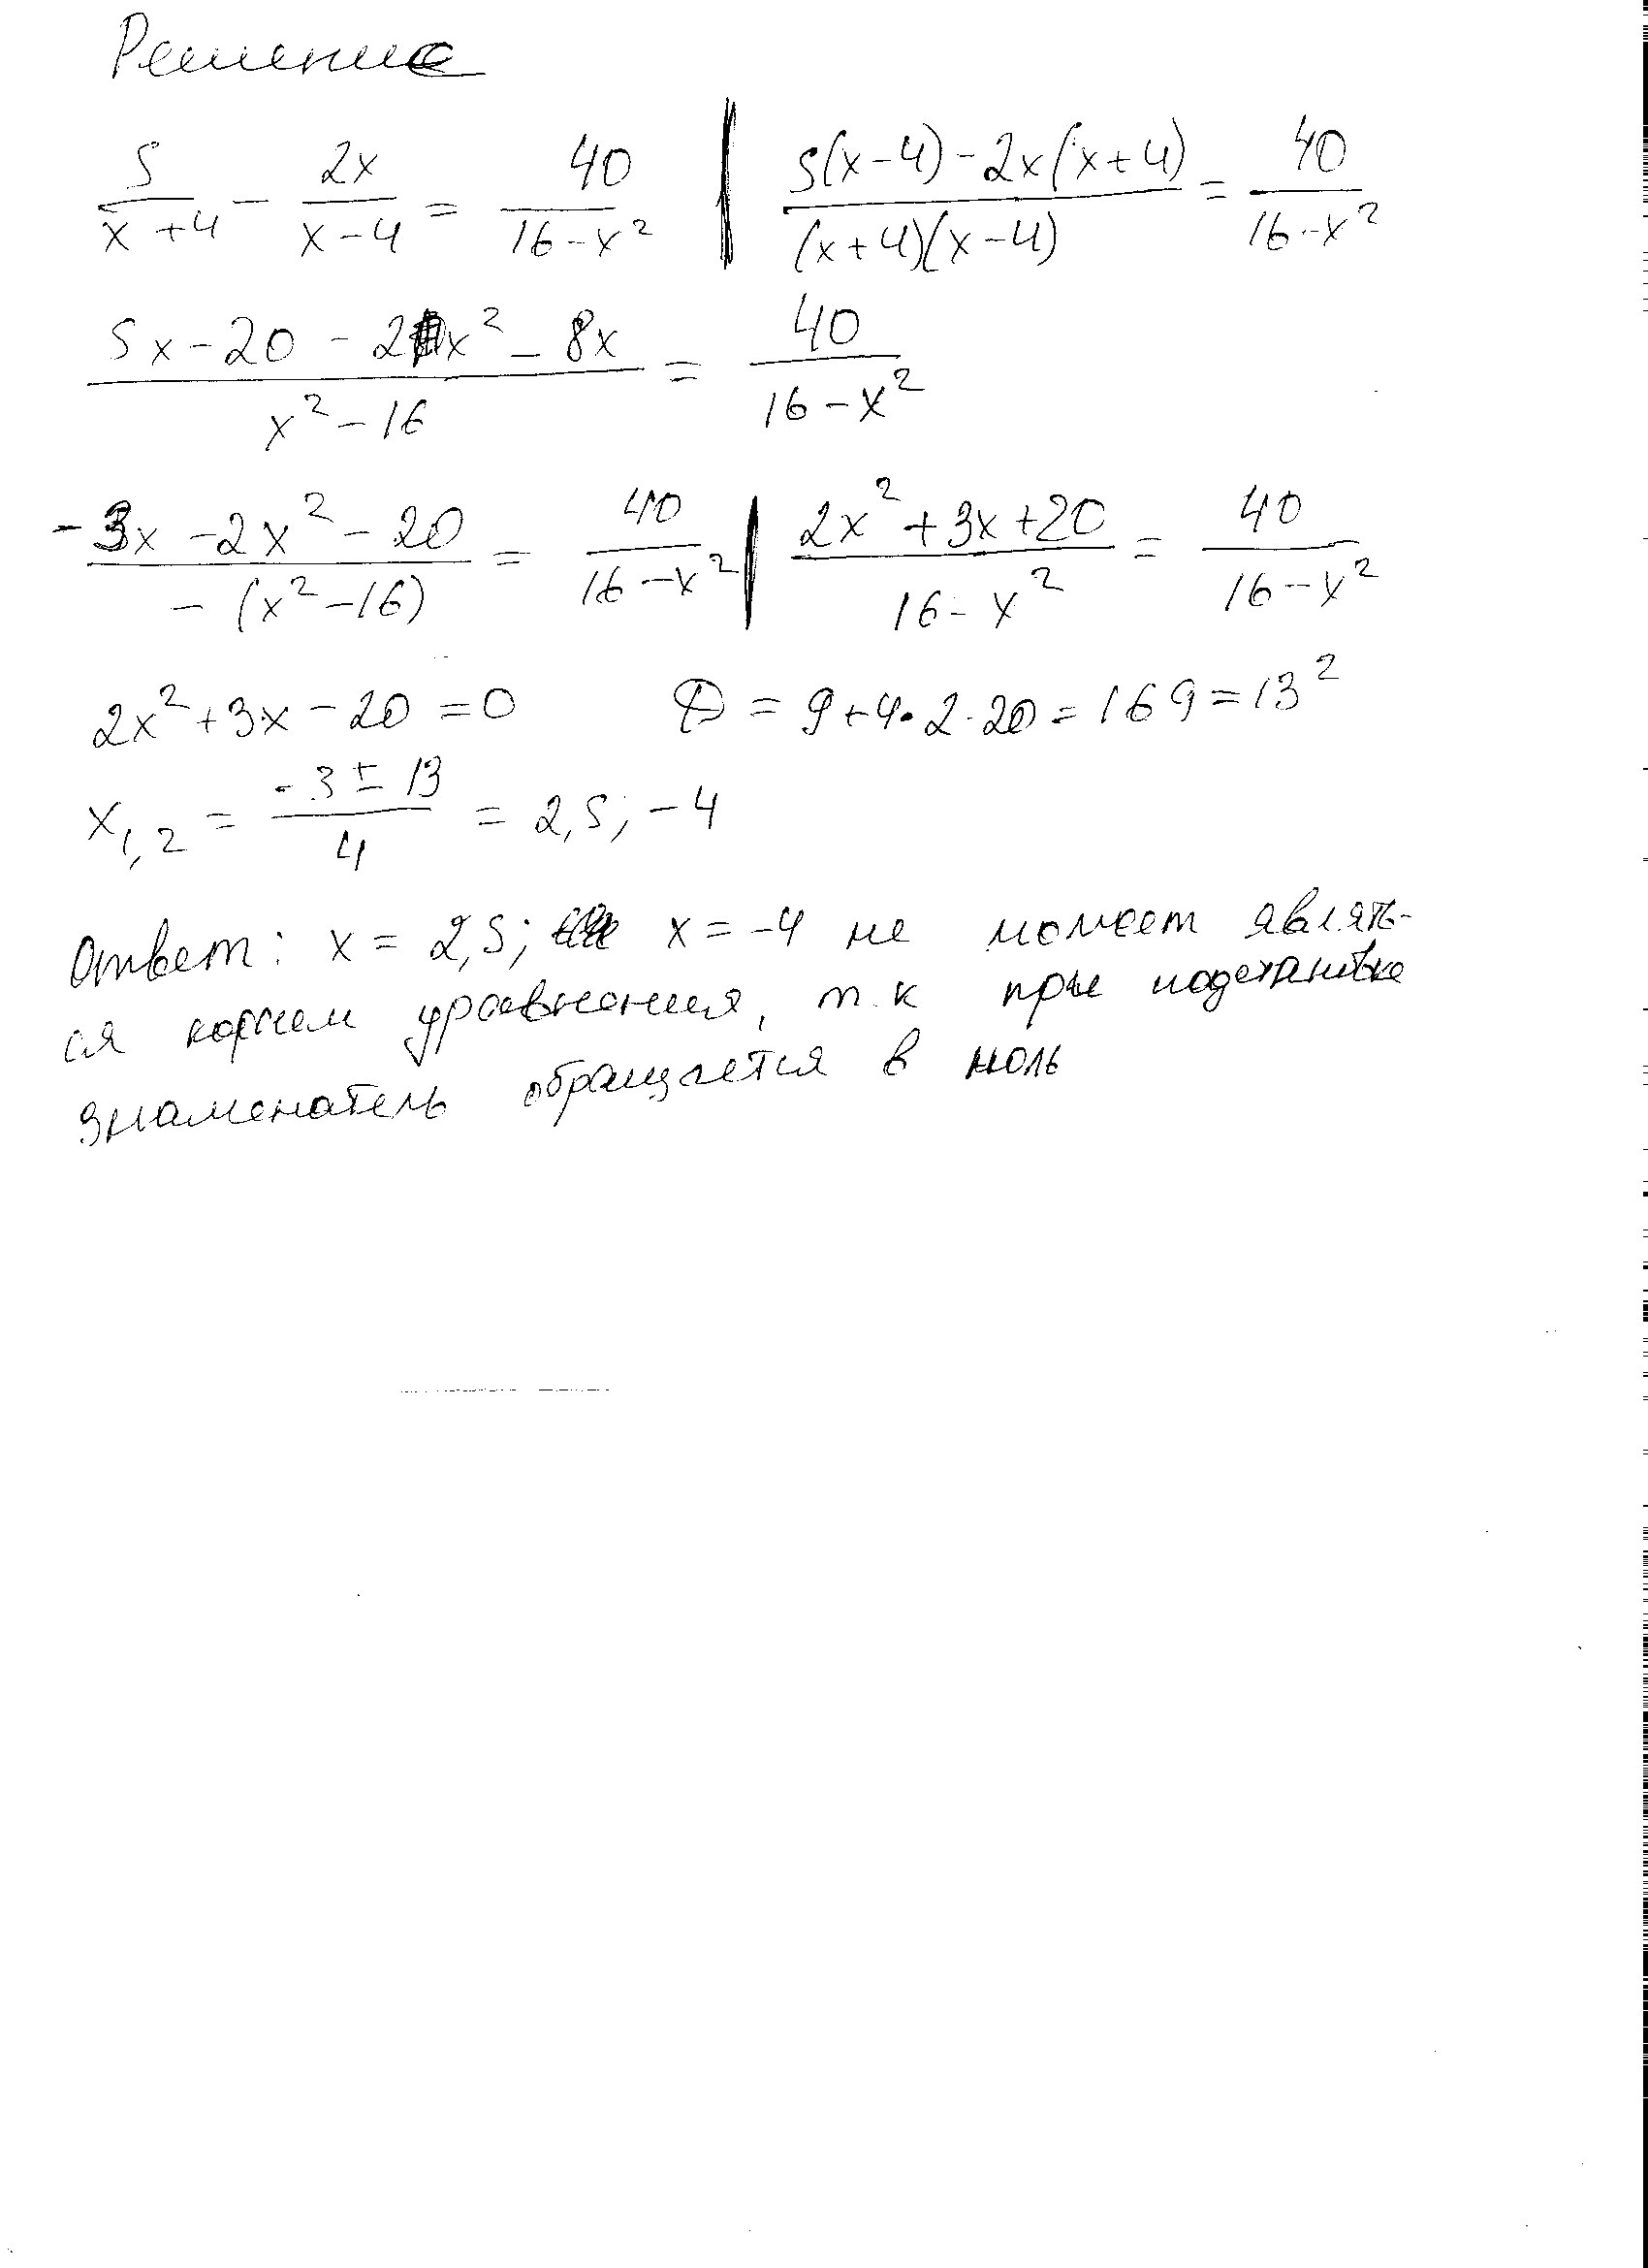 Решение
5/(x+4) - 2x/(x-4) = 40/(16-x²) | (5(x-4)-2x(x+4))/((x+4)(x-4)) = 40/(16-x²)
(5x-20-2x²-8x)/(x²-16) = 40/(16-x²)
(-3x-2x²-20)/(-(x²-16)) = 40/(16-x²) | (2x²+3x+20)/(16-x²) = 40/(16-x²)
2x²+3x-20=0 D = 9+4·2·20=169=13²
x₁,₂ = (-3±13)/4 = 2,5; -4
Ответ: x = 2,5; x = -4 не может являть-
ся корнем уравнения, т.к при подстановке
знаменатель обращается в ноль